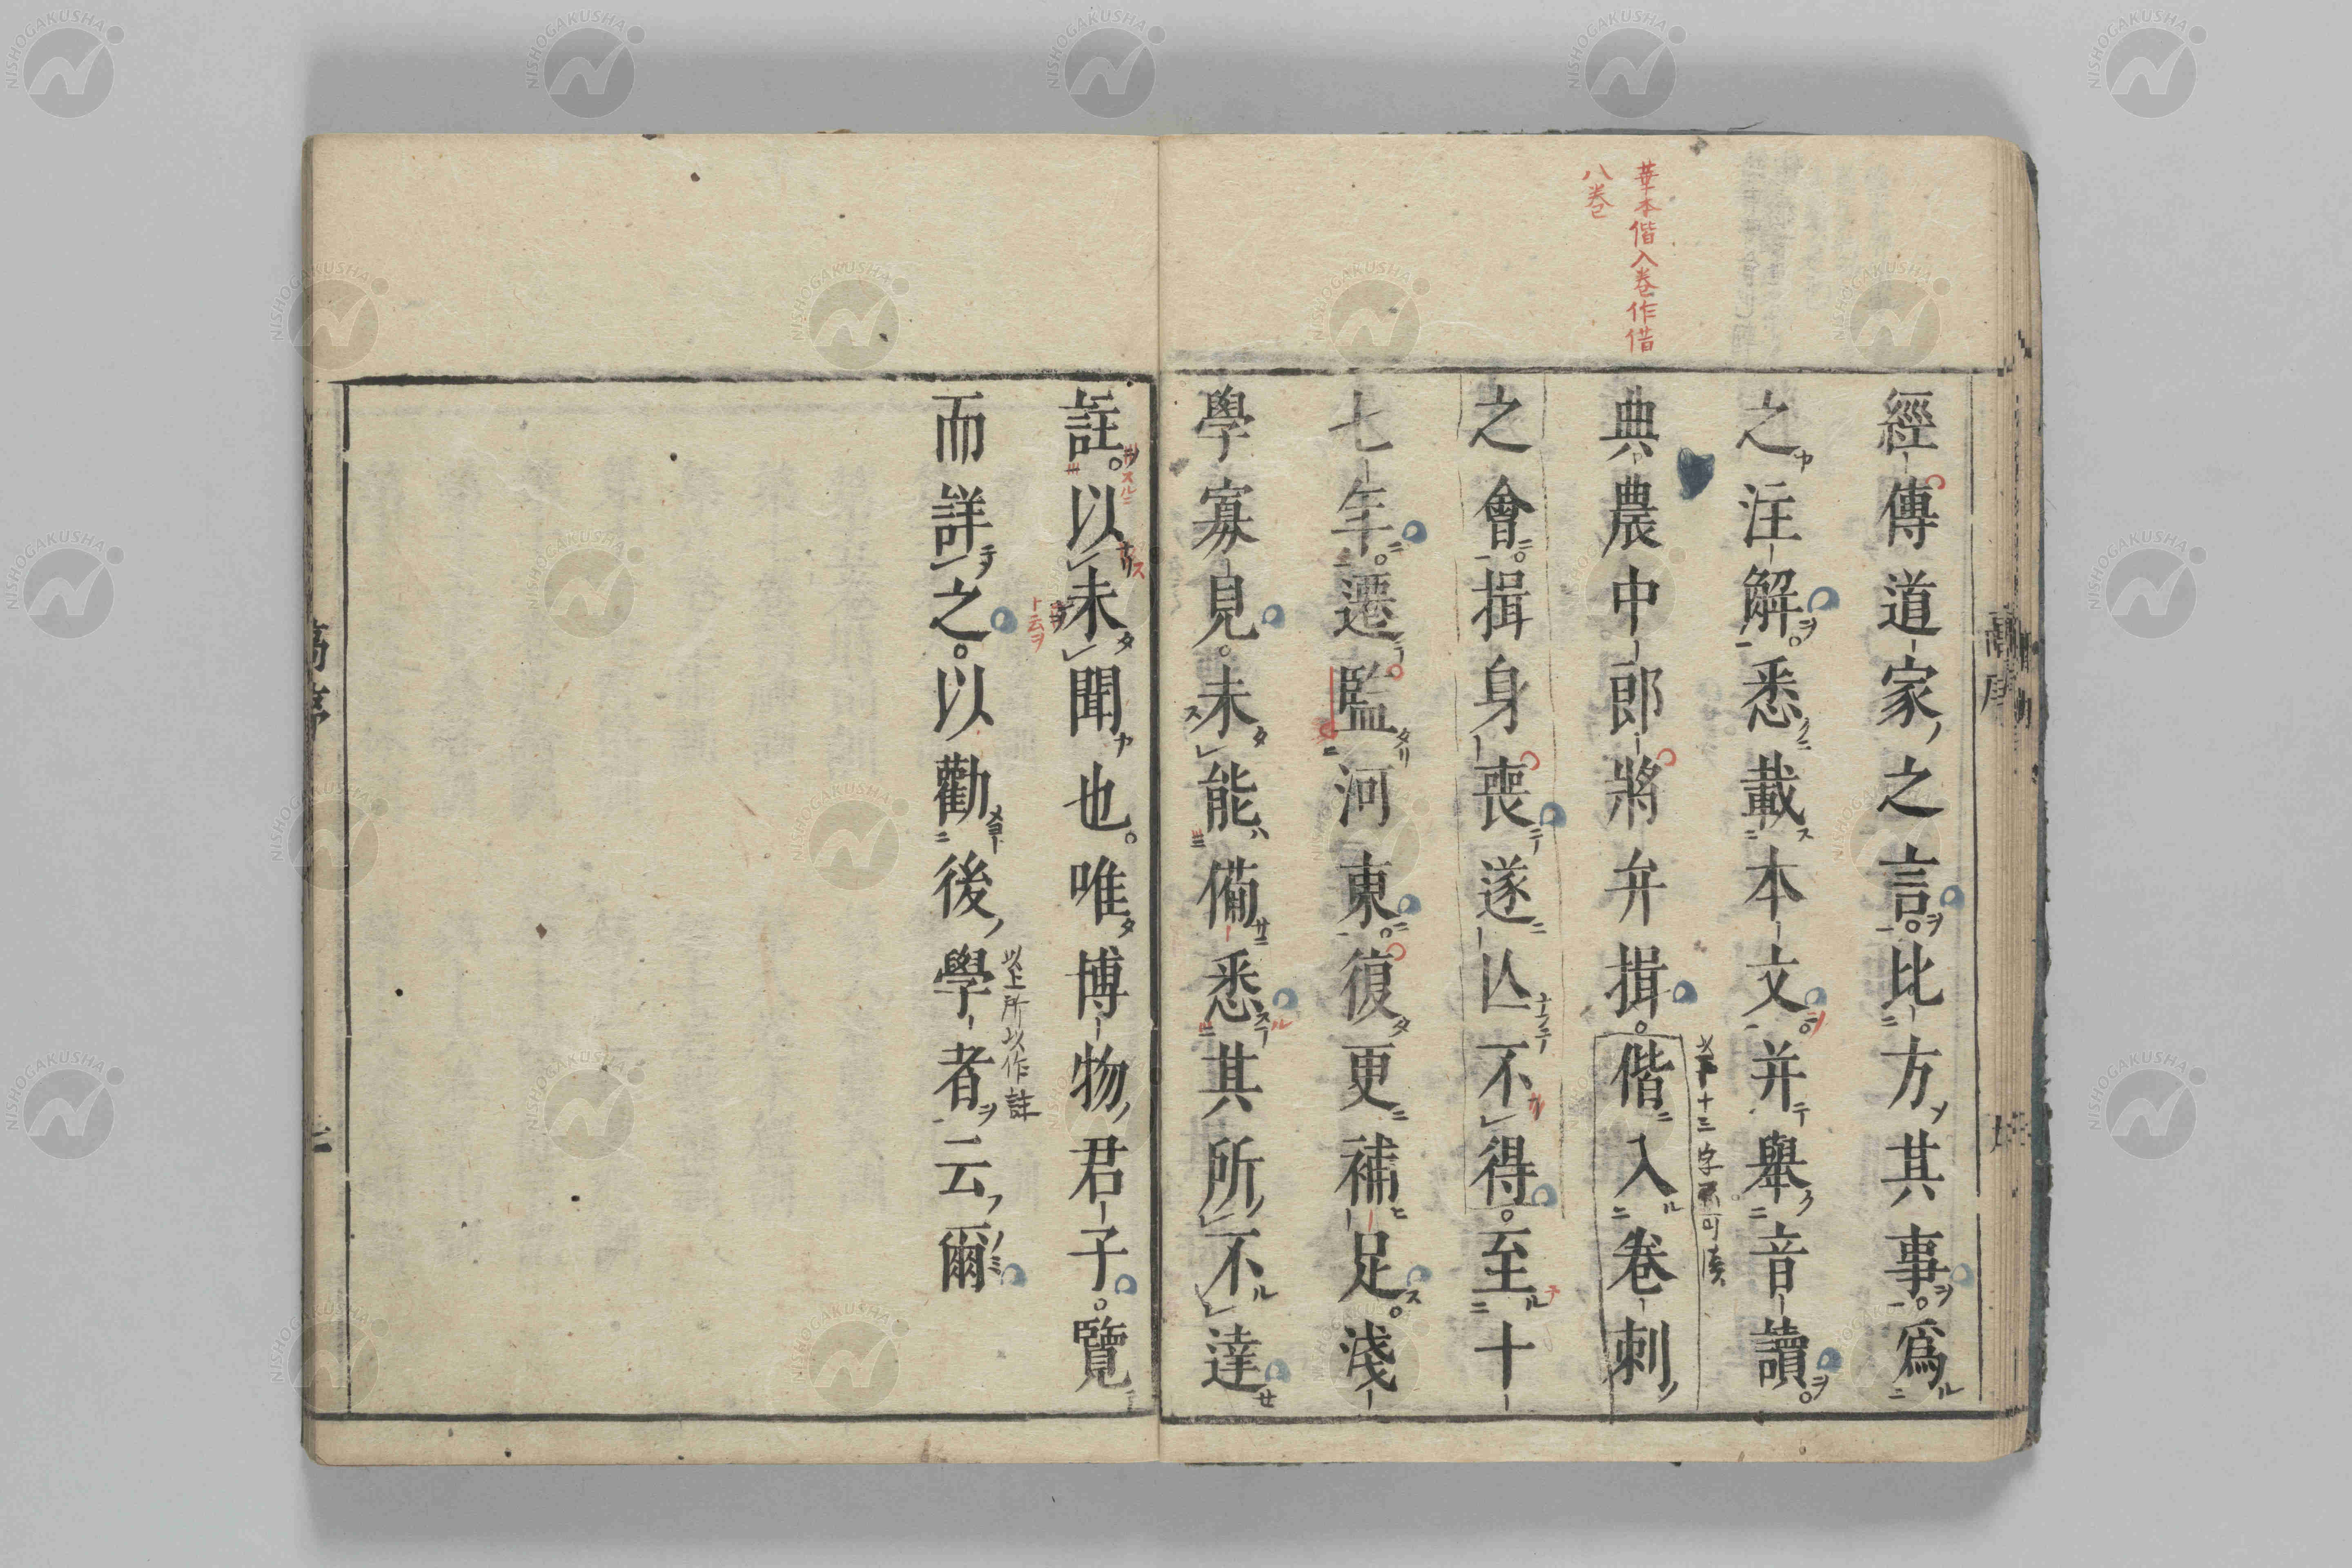 華本偕入卷作借
八卷
經傳道家之言比方其事爲
之注解悉載本文并舉音讀
典農中郎將弁揖偕入卷刺
之會揖身喪遂亾不得至十
七年遷監河東復更補足淺
學寡見未能備悉其所不達
註以未聞也唯博物君子覽
而詳之以勸後學者云爾
以上所以作註
高序
NISHOGAKUSHA